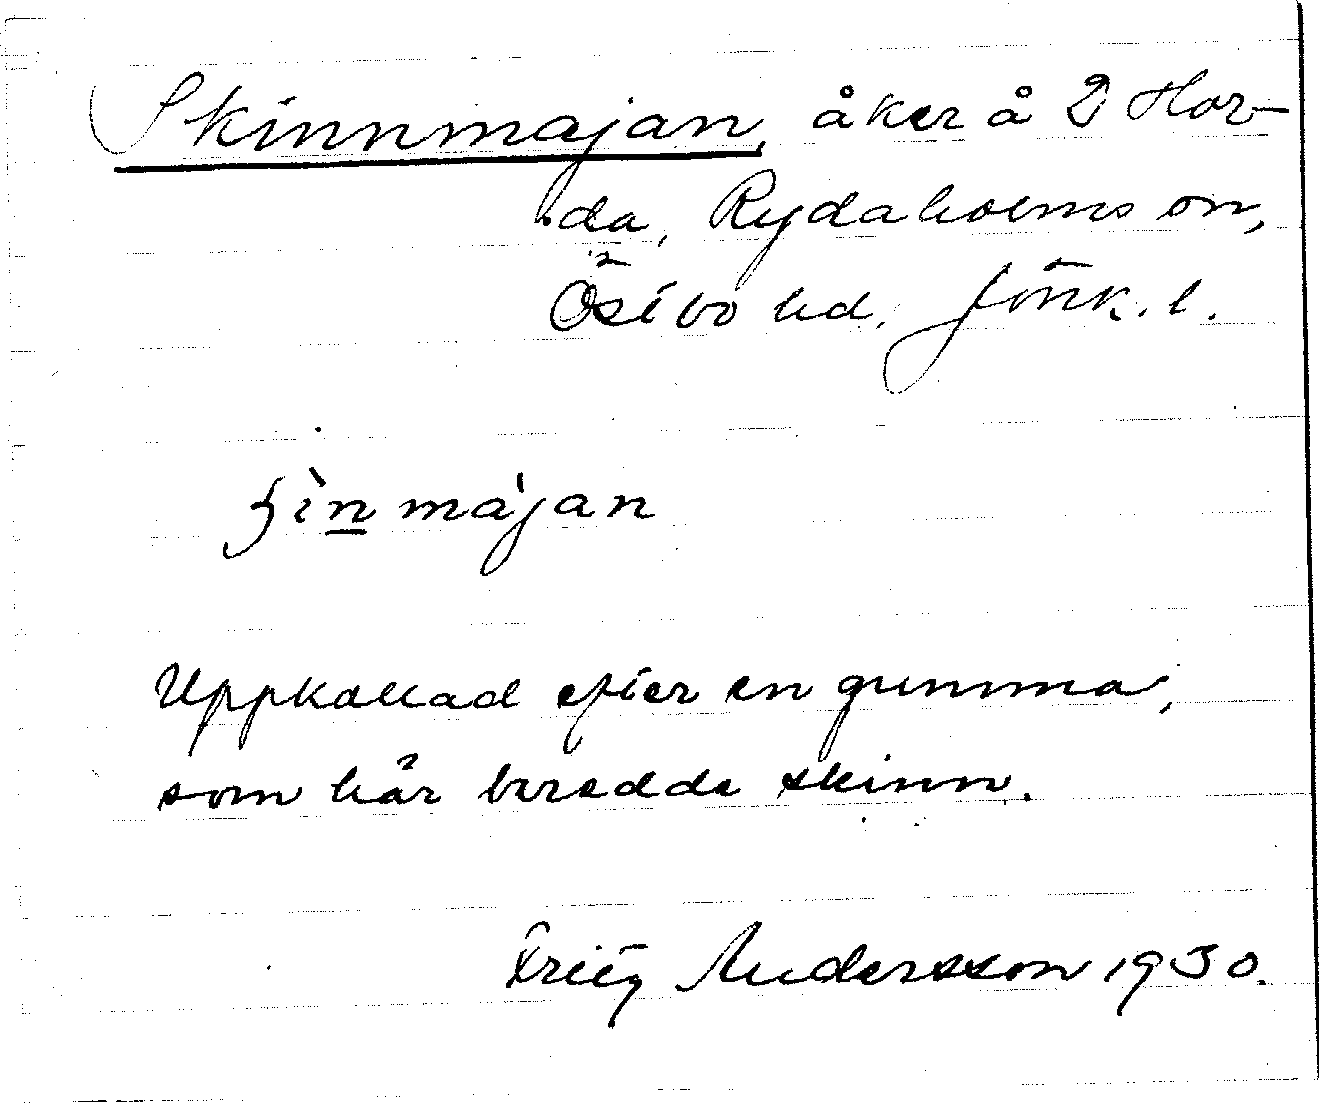 Skinnmajan, åker å D Hor-
da, Rydaholms sn,
Östbo hd. Jönk. l.
ʃìn màjan
Uppkallad efter en gumma,
som här beredde skinn.
Fritz Andersson 1930.